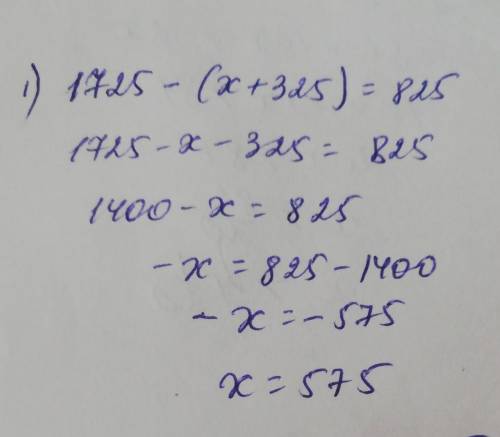 1) 1725 - (x + 325) = 825
1725 - x - 325 = 825
1400 - x = 825
- x = 825 - 1400
- x = - 575
x = 575